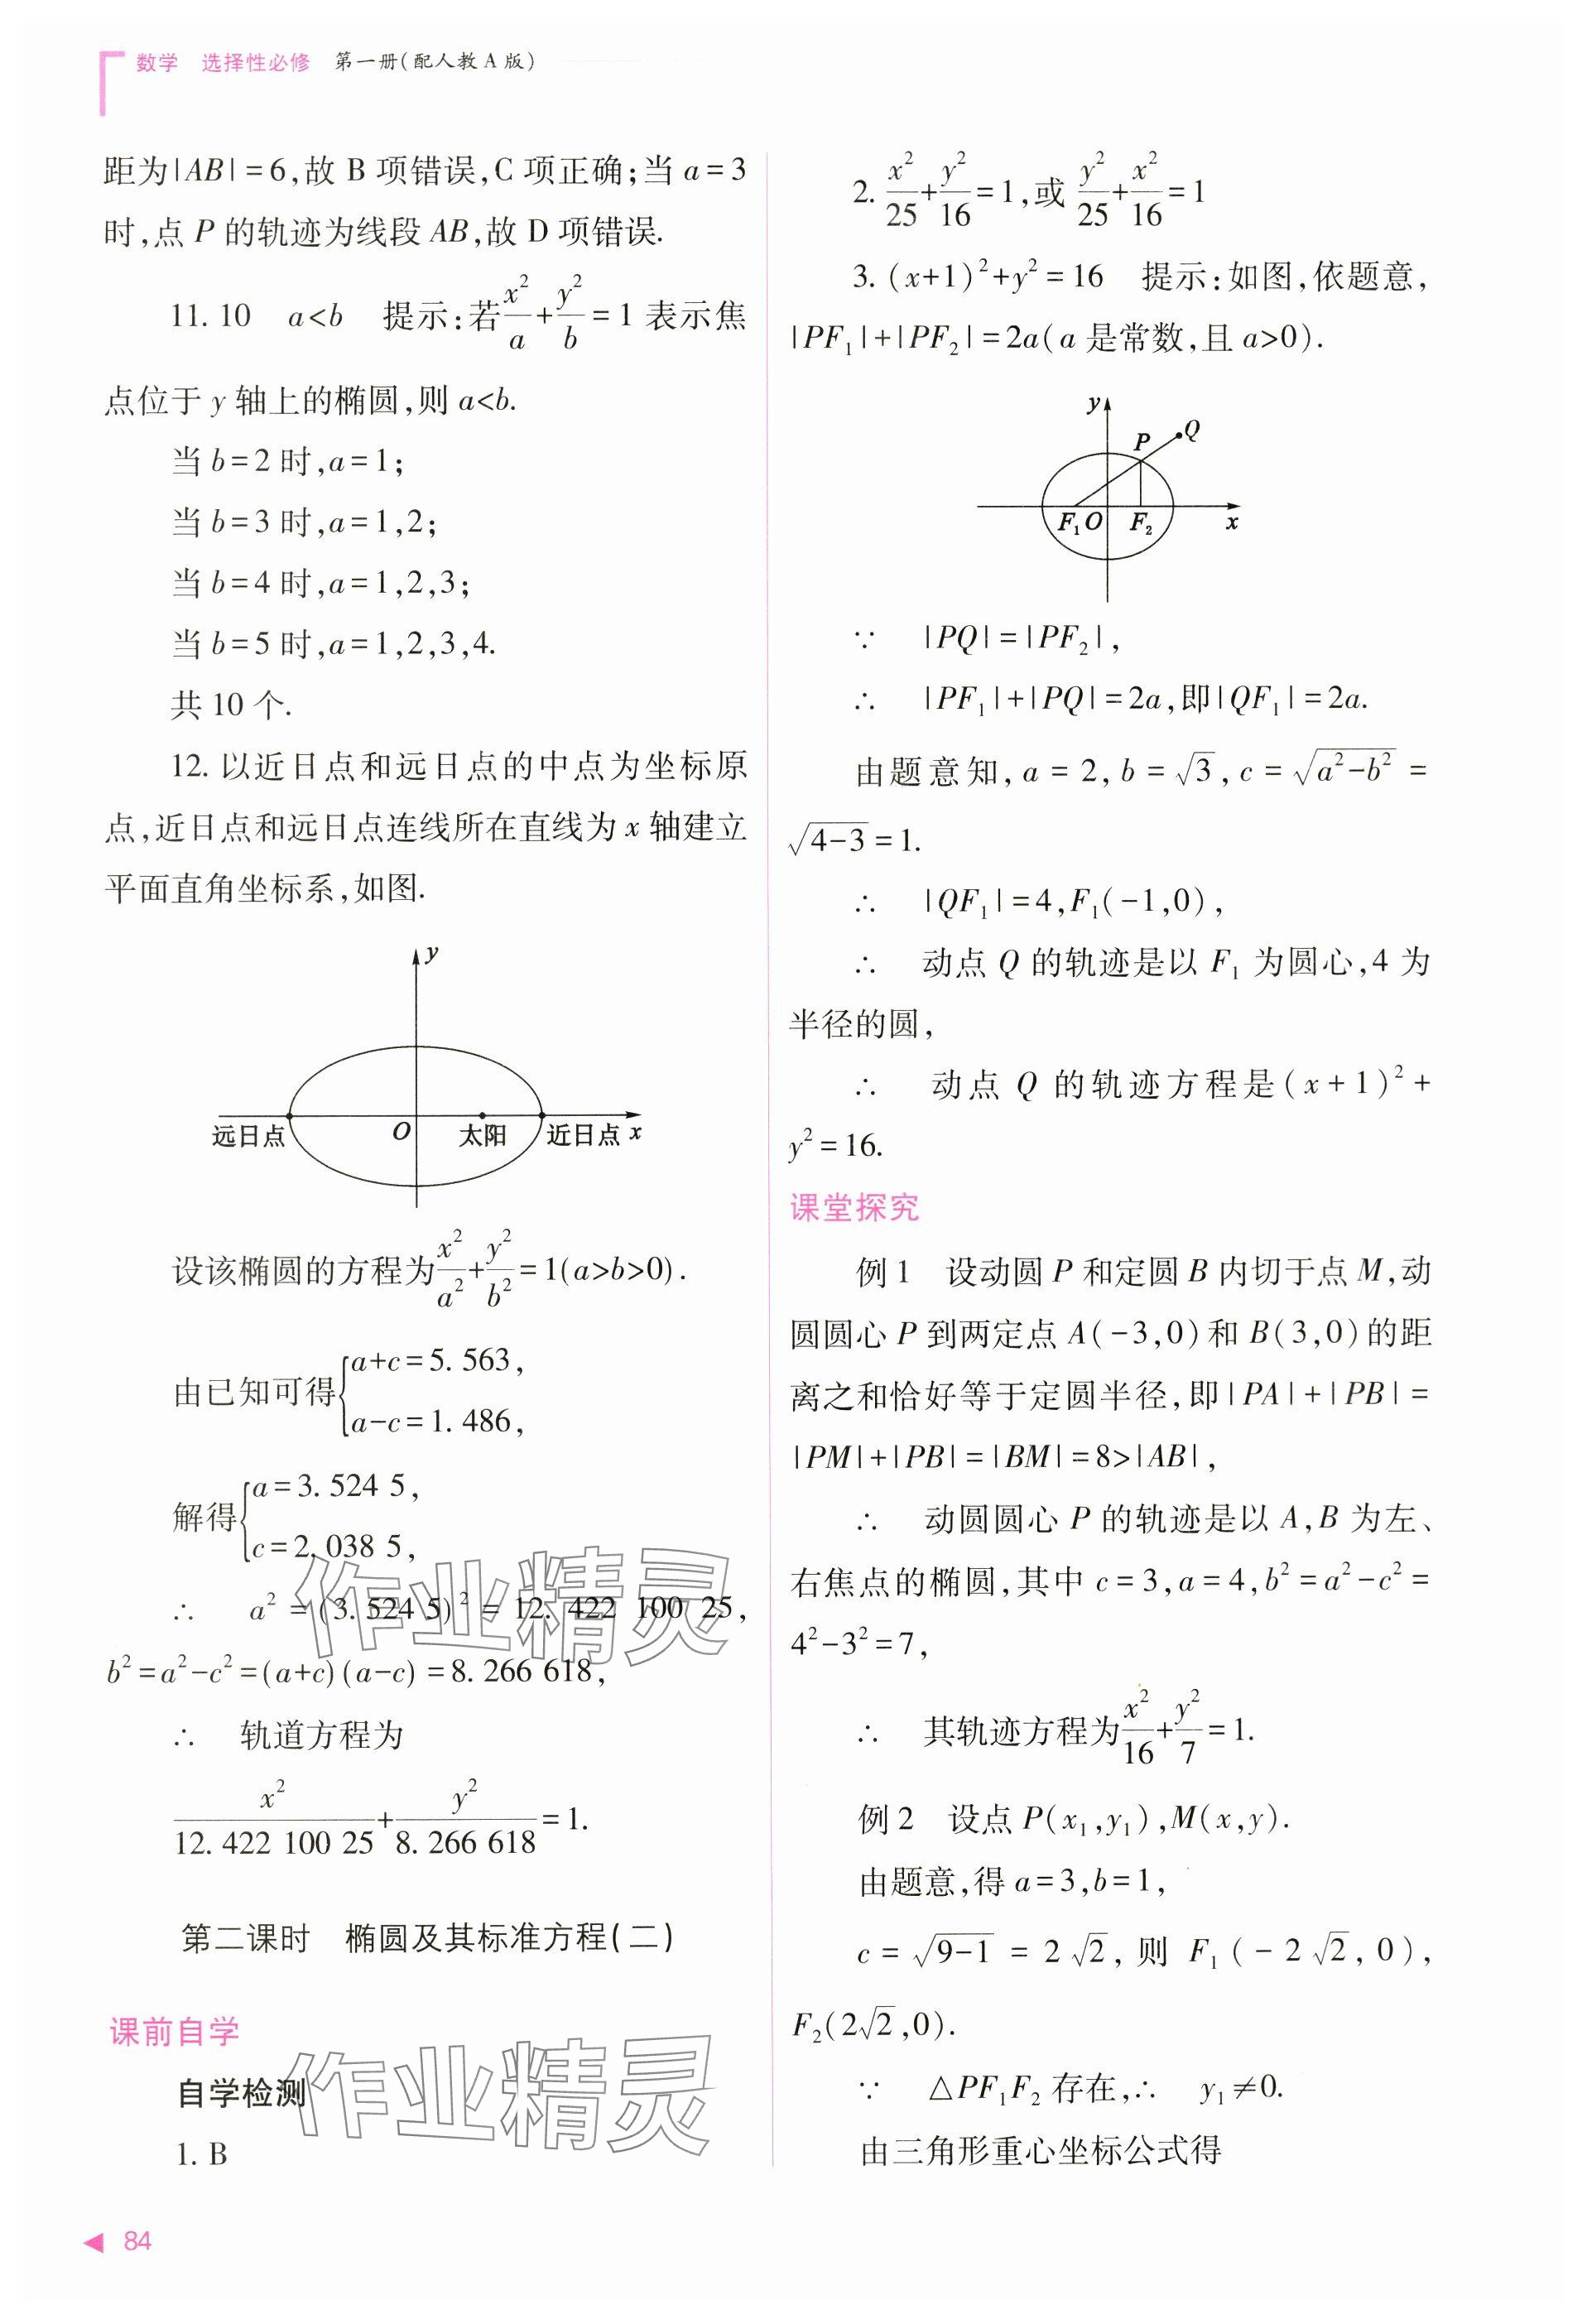 数学 选择性必修 第一册(配人教 A 版)
距为|AB|=6,故 B 项错误,C 项正确;当 a=3
时,点 P 的轨迹为线段 AB,故 D 项错误.
11. 10 a<b 提示:若x²/a+y²/b=1 表示焦
点位于 y 轴上的椭圆,则 a<b.
当 b=2 时,a=1;
当 b=3 时,a=1,2;
当 b=4 时,a=1,2,3;
当 b=5 时,a=1,2,3,4.
共 10 个.
12. 以近日点和远日点的中点为坐标原
点,近日点和远日点连线所在直线为 x 轴建立
平面直角坐标系,如图.
y
远日点 O 太阳 近日点 x
设该椭圆的方程为x²/a²+y²/b²=1(a>b>0).
由已知可得{a+c=5. 563,
a-c=1. 486,
解得{a=3. 524 5,
c=2. 038 5,
∴ a²=(3. 524 5)²=12. 422 100 25,
b²=a²-c²=(a+c)(a-c)=8. 266 618,
∴ 轨道方程为
x²/12. 422 100 25+y²/8. 266 618=1.
第二课时 椭圆及其标准方程(二)
课前自学
自学检测
1. B
2. x²/25+y²/16=1,或 y²/25+x²/16=1
3. (x+1)²+y²=16 提示:如图,依题意,
|PF₁|+|PF₂|=2a(a 是常数,且 a>0).
y
P
Q
F₁ O F₂ x
∵ |PQ|=|PF₂|,
∴ |PF₁|+|PQ|=2a,即|QF₁|=2a.
由题意知,a=2,b=√3,c=√(a²-b²)=
√(4-3)=1.
∴ |QF₁|=4,F₁(-1,0),
∴ 动点 Q 的轨迹是以 F₁ 为圆心,4 为
半径的圆,
∴ 动点 Q 的轨迹方程是(x+1)²+
y²=16.
课堂探究
例 1 设动圆 P 和定圆 B 内切于点 M,动
圆圆心 P 到两定点 A(-3,0)和 B(3,0)的距
离之和恰好等于定圆半径,即|PA|+|PB|=
|PM|+|PB|=|BM|=8>|AB|,
∴ 动圆圆心 P 的轨迹是以 A,B 为左、
右焦点的椭圆,其中 c=3,a=4,b²=a²-c²=
4²-3²=7,
∴ 其轨迹方程为x²/16+y²/7=1.
例 2 设点 P(x₁,y₁),M(x,y).
由题意,得 a=3,b=1,
c=√(9-1)=2√2,则 F₁(-2√2,0),
F₂(2√2,0).
∵ △PF₁F₂ 存在,∴ y₁≠0.
由三角形重心坐标公式得
84
作业精灵
作业精灵